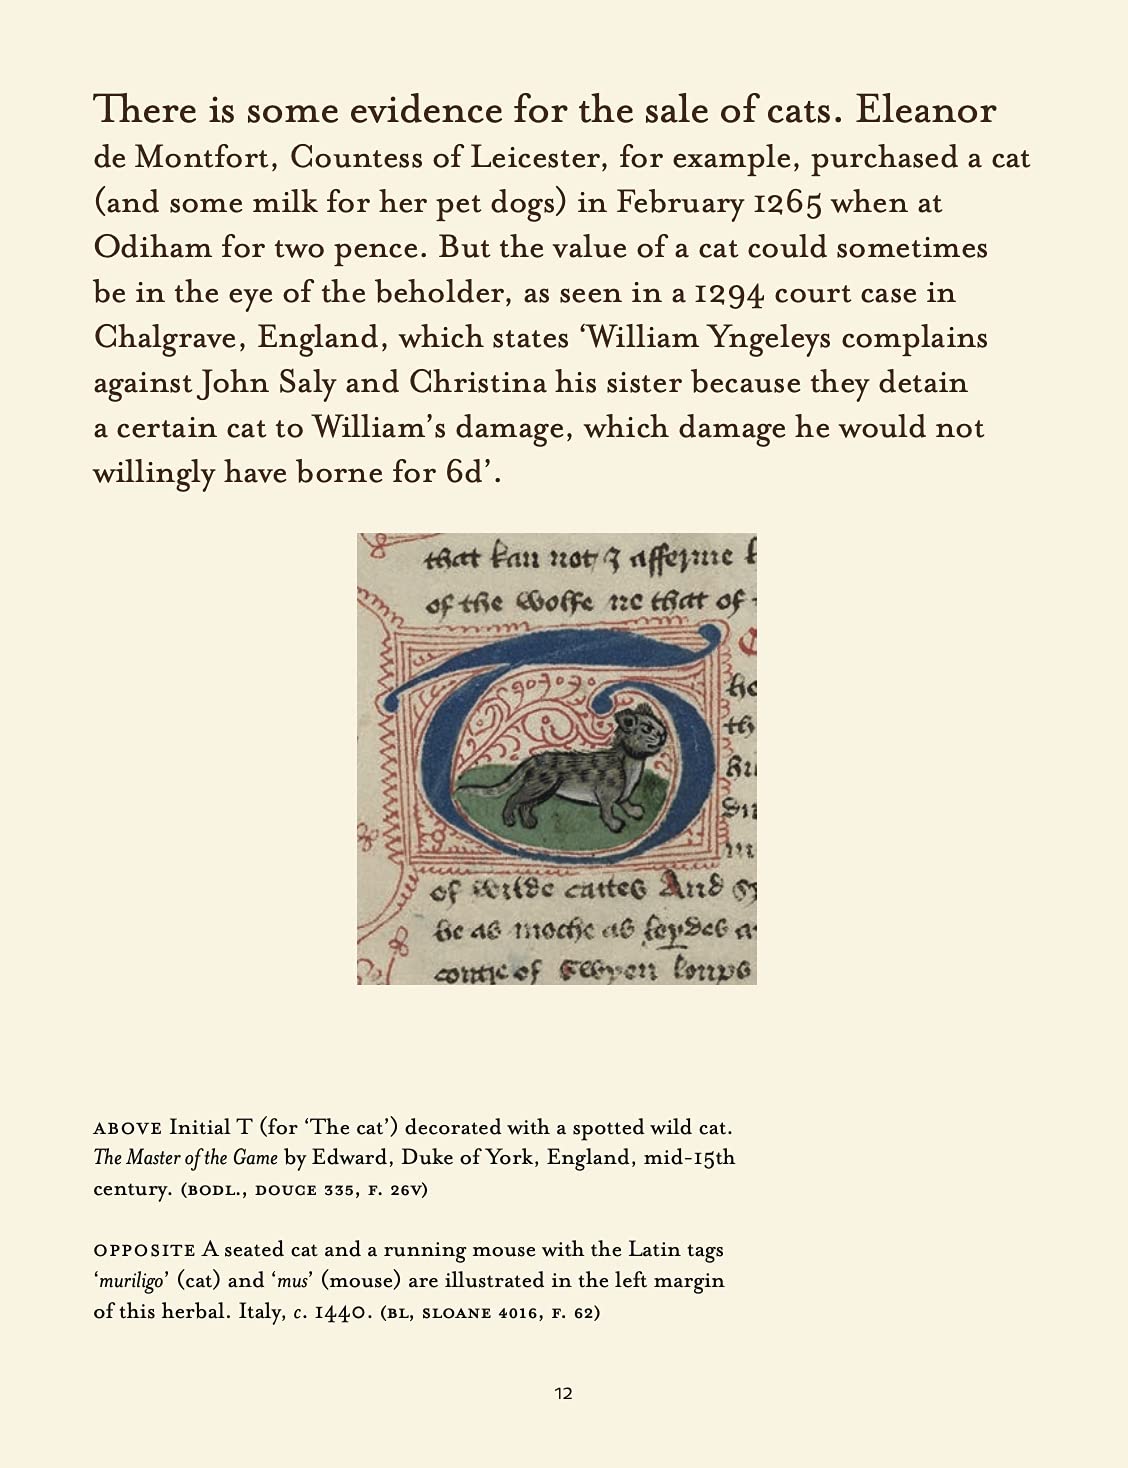 There is some evidence for the sale of cats. Eleanor
de Montfort, Countess of Leicester, for example, purchased a cat
(and some milk for her pet dogs) in February 1265 when at
Odiham for two pence. But the value of a cat could sometimes
be in the eye of the beholder, as seen in a 1294 court case in
Chalgrave, England, which states ‘William Yngeleys complains
against John Saly and Christina his sister because they detain
a certain cat to William’s damage, which damage he would not
willingly have borne for 6d’.
that kan not & afferme
of the wolfe ne that of
T
of wilde cattes And
be as moche as
of lonps
ABOVE Initial T (for ‘The cat’) decorated with a spotted wild cat.
The Master of the Game by Edward, Duke of York, England, mid-15th
century. (BODL., DOUCE 335, F. 26V)
OPPOSITE A seated cat and a running mouse with the Latin tags
‘muriligo’ (cat) and ‘mus’ (mouse) are illustrated in the left margin
of this herbal. Italy, c. 1440. (BL, SLOANE 4016, F. 62)
12